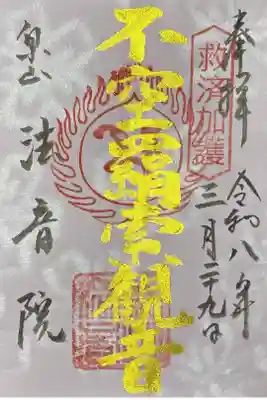 奉拝
救済加護
令和八年
三月二十九日
不空羂索観音
泉山 法音院